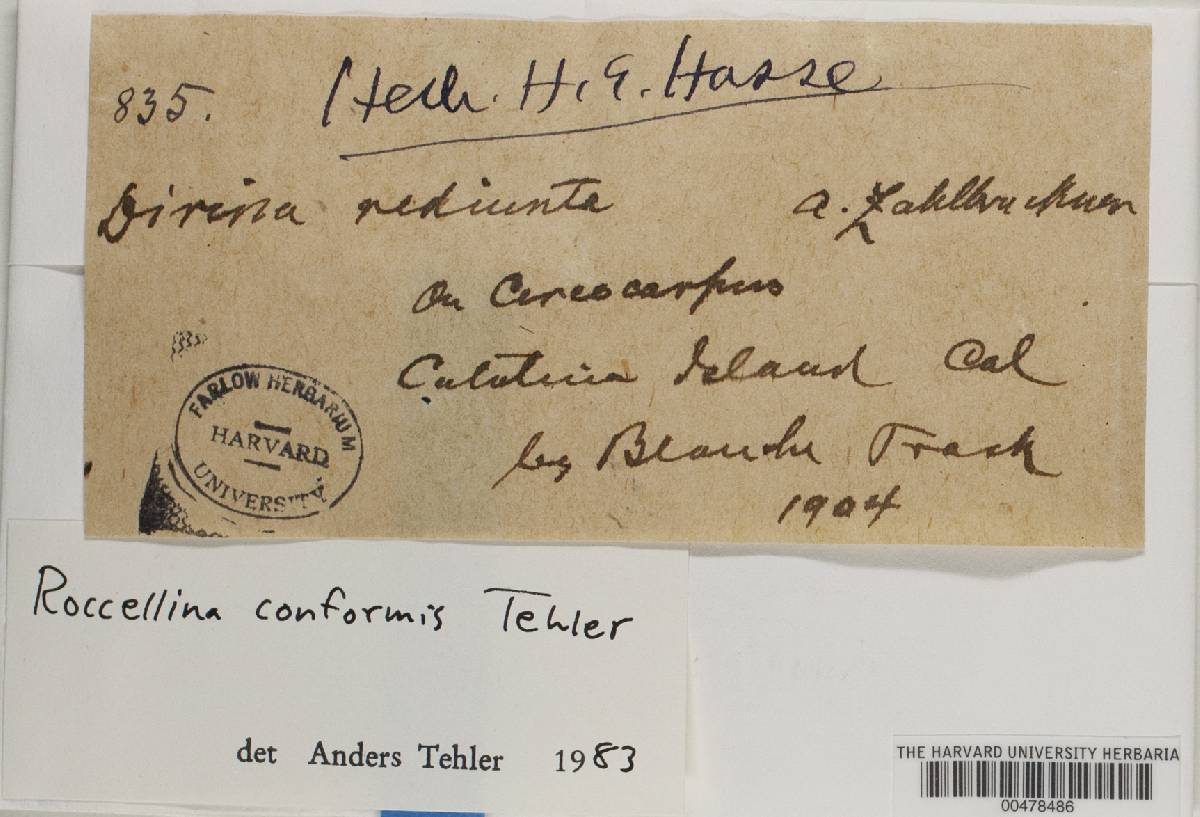 835. Herb. H. E. Hasse
Dirina rediunta A. Zahlbruckner
On Cercocarpus
Catalina Island Cal
leg Blanche Trask
1904
FARLOW HERBARIUM
HARVARD
UNIVERSITY
Roccellina conformis Tehler
det Anders Tehler 1983
THE HARVARD UNIVERSITY HERBARIA
00478486